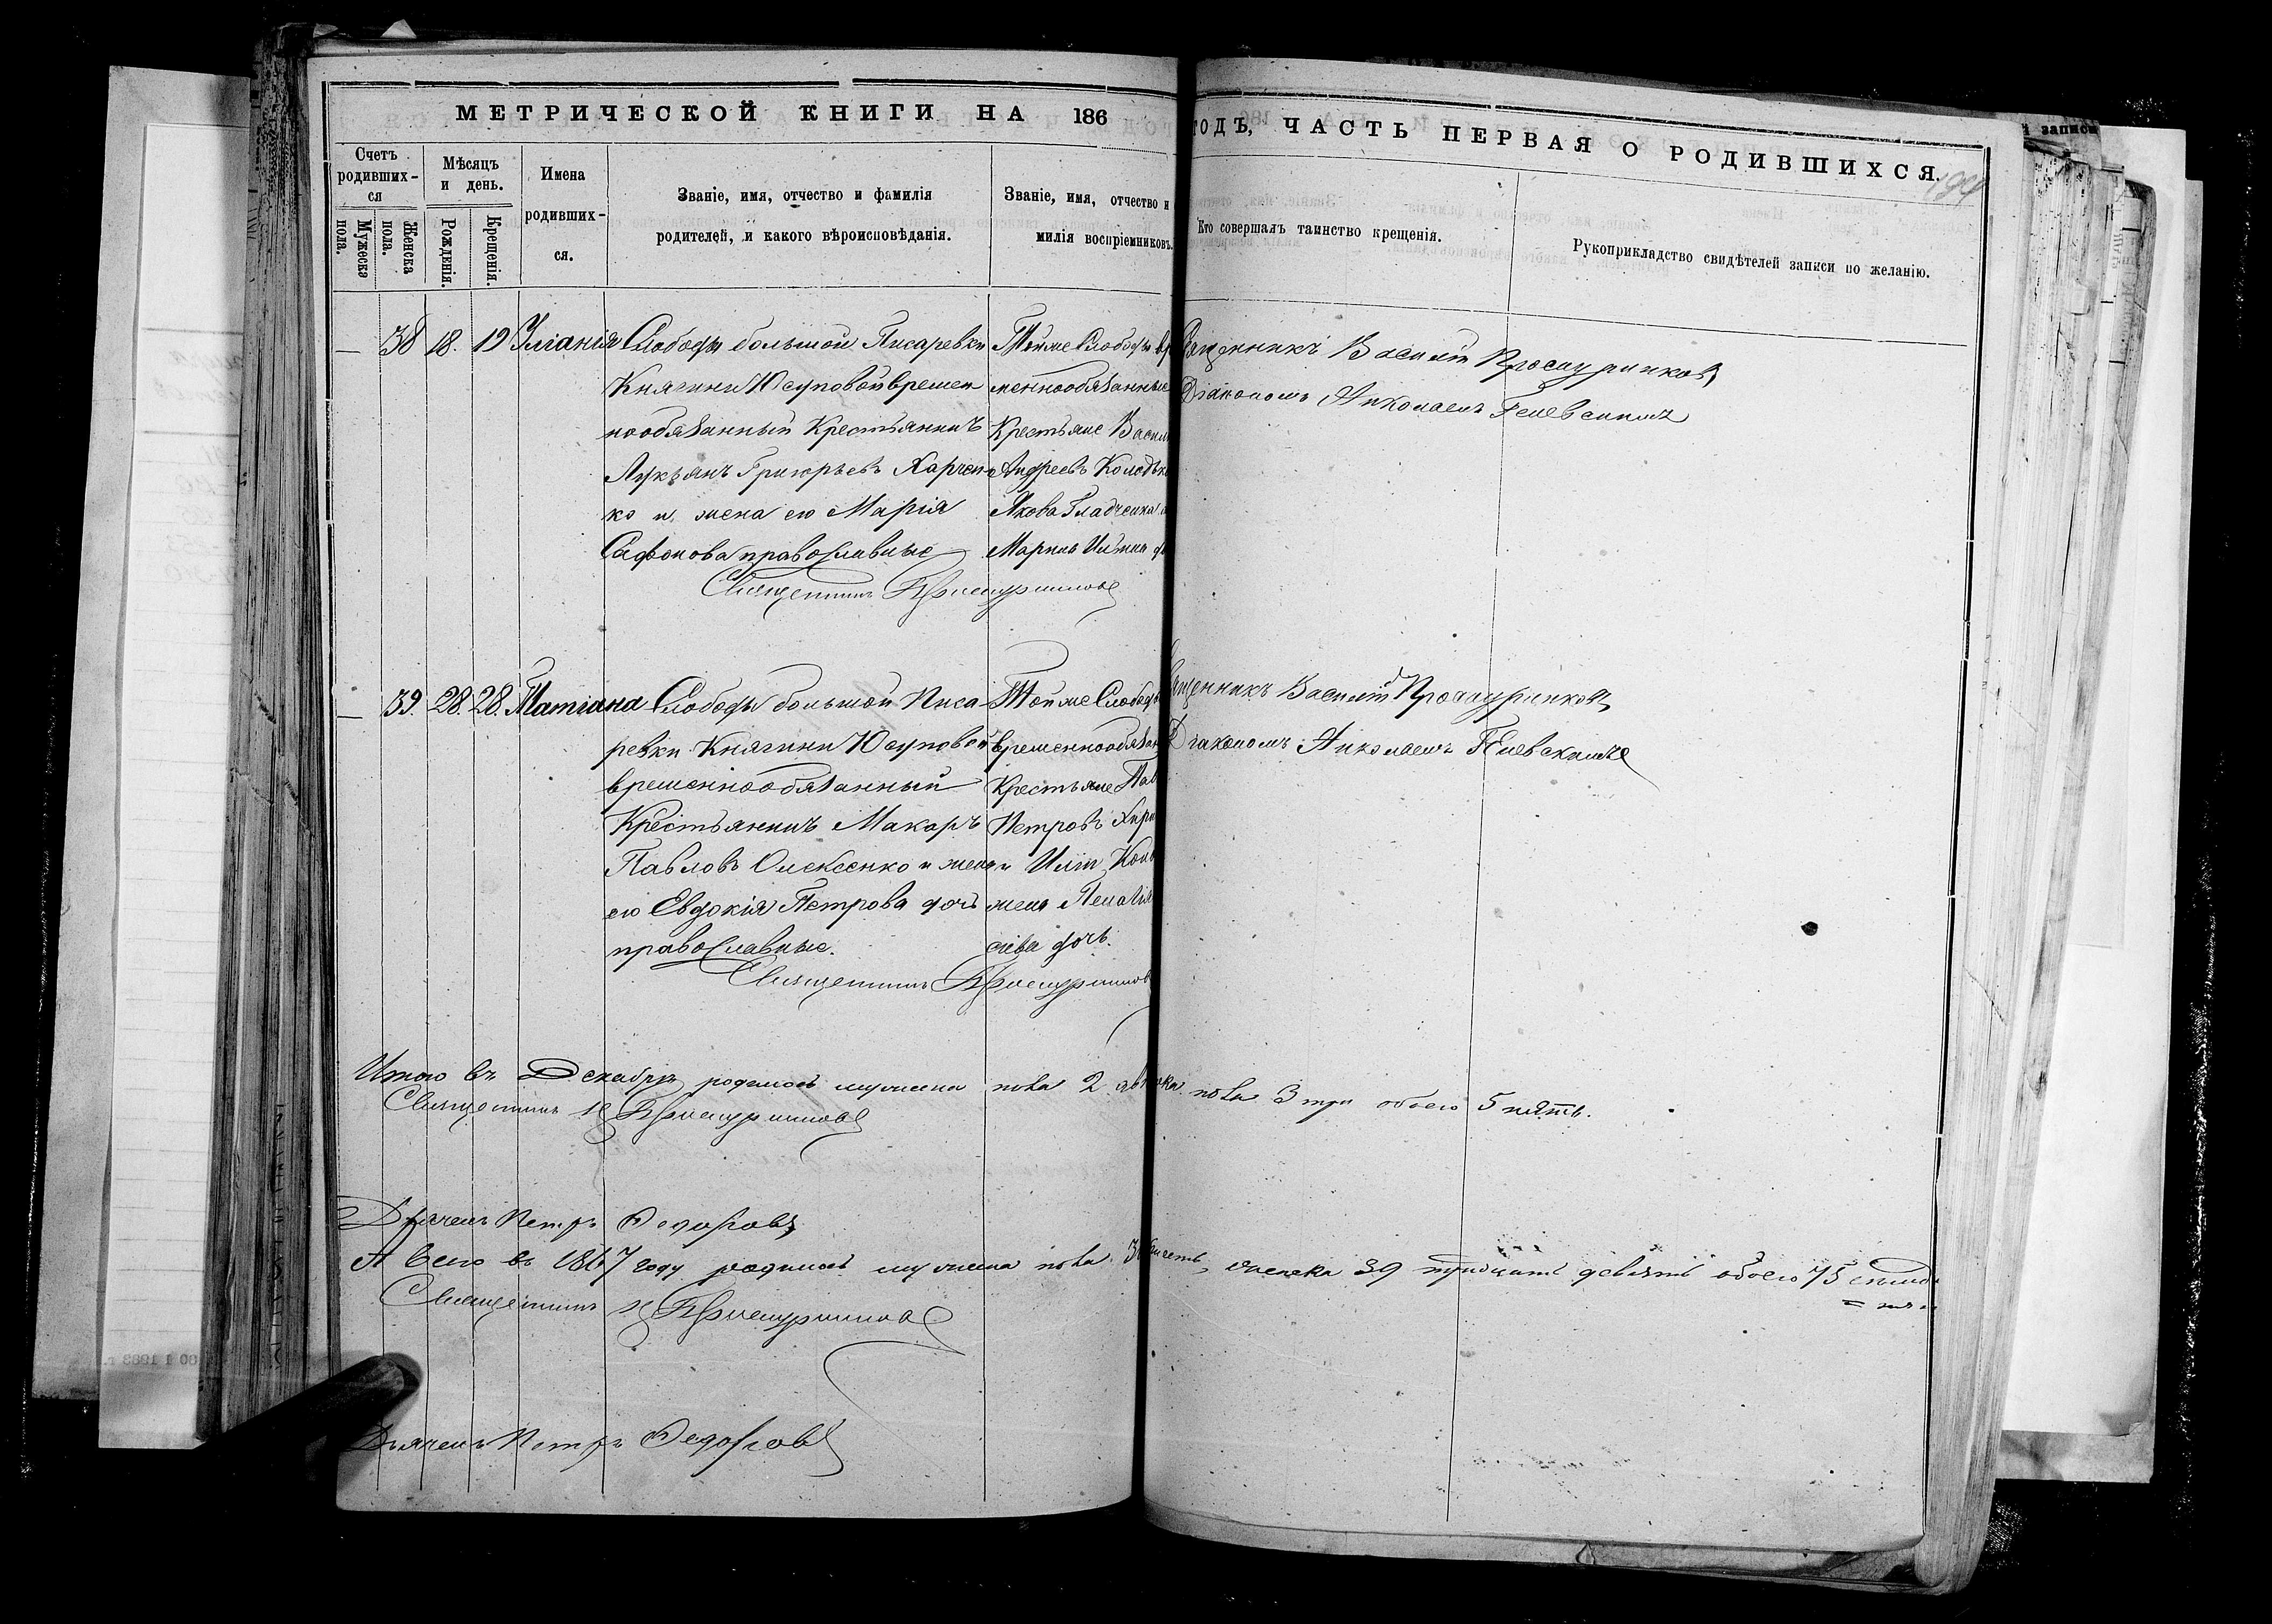 МЕТРИЧЕСКОЙ КНИГИ НА 186
ГОДЪ, ЧАСТЬ ПЕРВАЯ О РОДИВШИХСЯ.
Счетъ родивших-ся
Мужеска пола.
Женска пола.
Мѣсяцъ и день.
Рожденія.
Крещенія.
Имена родивших-ся.
Званіе, имя, отчество и фамилія
родителей, и какого вѣроисповѣданія.
Званіе, имя, отчество и
милія воспріемниковъ.
Кто совершалъ таинство крещенія.
Рукоприкладство свидѣтелей записи по желанію.
— 38 18. 19 Уліанія
Слободы большой Писаревки
Княгини Юсуповой времен
нообязанный Крестьянинъ
Лукьянъ Григорьевъ Харчен
ко и жена его Марія
Сафонова православные
Тойже Слободы вр
меннообязанные
Крестьяне Васил
Андреевъ Колодяж
Якова Гладченка
Священникъ Василій Проскурниковъ
Діакономъ Николаемъ
Священникъ Проскурниковъ
— 39. 28. 28. Татіана
Слободы большой Писа
ревки Княгини Юсуповой
временнообязанный
Крестьянинъ Макаръ
Павловъ Олексенко и жена
его Евдокія Петрова дочь
православные.
Тойже Слободы
временнообязан
Крестьяне Пав
Петровъ
жена Пелагія
дочь.
щенникъ Василій Проскурниковъ
Діакономъ Николаемъ
Священникъ Проскурников
Итого въ Декабрѣ родилось мужеска пола 2 два женска пола 3 три обоего 5 пять.
Священникъ Проскурниковъ
Дьячекъ Петръ Федоровъ
А всего въ 1867 году родилось мужеска пола 36 шесть, женска 39 тридцать девять обоего 75 семьде
= пять
Священникъ Проскурниковъ
Дьячекъ Петръ Федоровъ